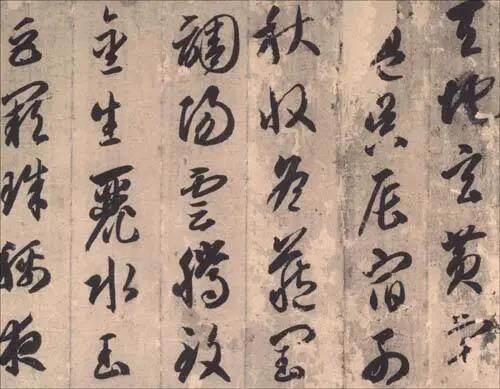 天地玄黃
盈昃辰宿列
秋收冬藏閏
調陽雲騰致
金生麗水玉
巨闕珠稱夜